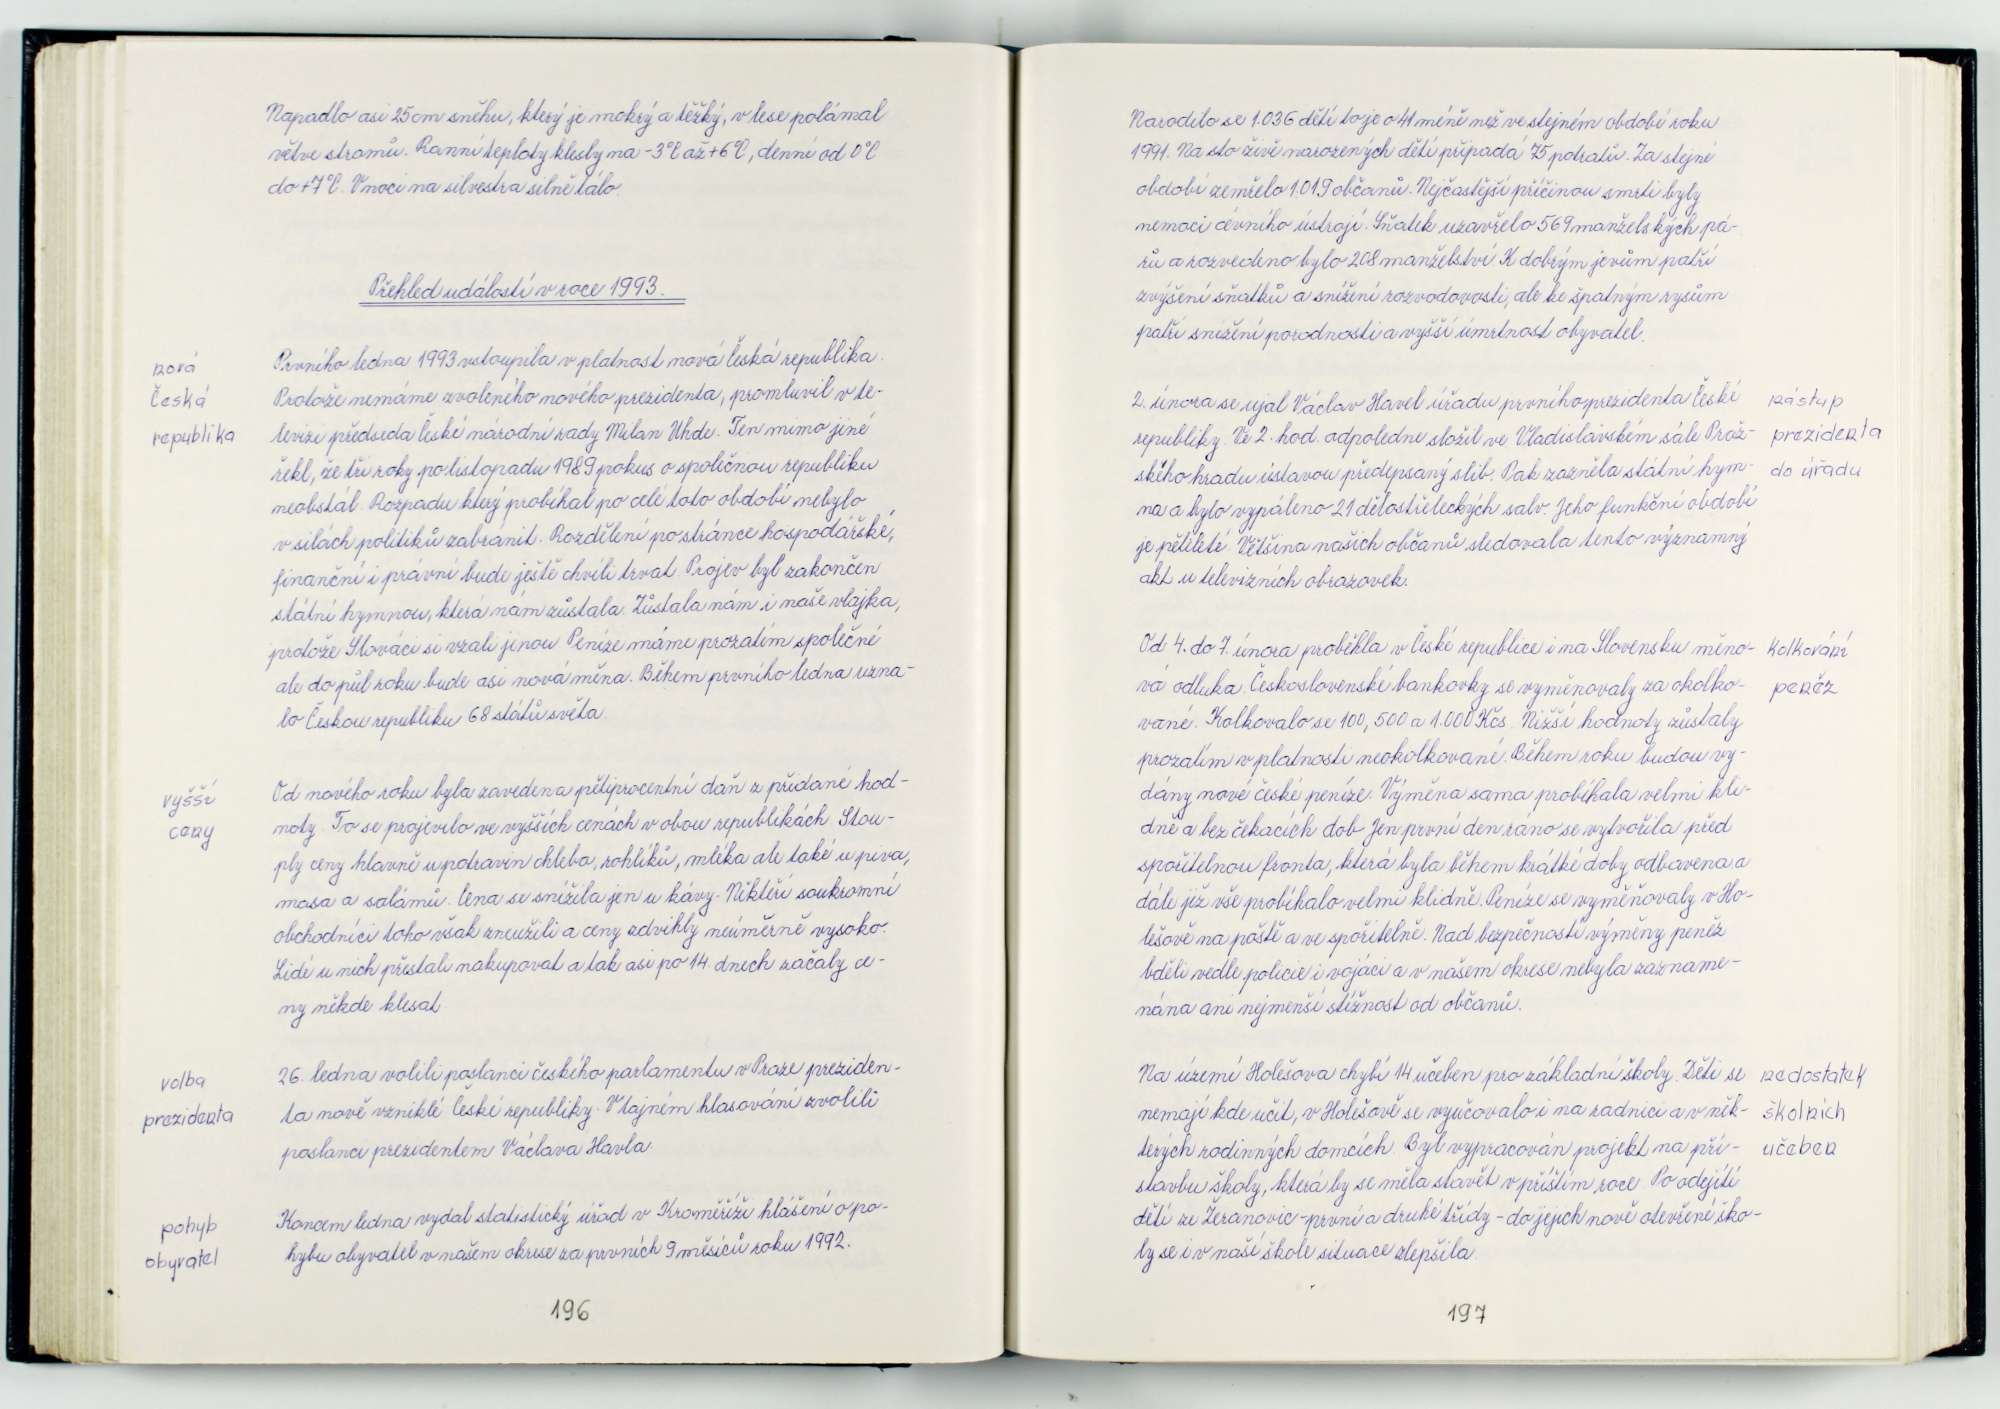 Napadlo asi 25 cm sněhu, který je mokrý a těžký, v lese polámal
větve stromů. Ranní teploty klesly na -3°C až +6°C, denní od 0°C
do +7°C. V noci na silvestra silně tálo.
Přehled událostí v roce 1993.
nová
Česká
republika
Prvního ledna 1993 vstoupila v platnost nová Česká republika.
Protože nemáme zvoleného nového prezidenta, promluvil v te-
levizi předseda České národní rady Milan Uhde. Ten mimo jiné
řekl, že tři roky po listopadu 1989 pokus o společnou republiku
neobstál. Rozpadu který probíhal po celé toto období nebylo
v silách politiků zabránit. Rozdělení po stránce hospodářské,
finanční i právní bude ještě chvíli trvat. Projev byl zakončen
státní hymnou, která nám zůstala. Zůstala nám i naše vlajka,
protože Slováci si vzali jinou. Peníze máme prozatím společné
ale do půl roku bude asi nová měna. Během prvního ledna uzna-
lo Českou republiku 68 států světa.
vyšší
ceny
Od nového roku byla zavedena pětiprocentní daň z přidané hod-
noty. To se projevilo ve vyšších cenách v obou republikách. Stou-
ply ceny hlavně u potravin chleba, rohlíků, mléka ale také u piva,
masa a salámů. Cena se snížila jen u kávy. Někteří soukromní
obchodníci toho však zneužili a ceny zdvihly neúměrně vysoko.
Lidé u nich přestali nakupovat a tak asi po 14 dnech začaly ce-
ny někde klesat
volba
prezidenta
26. ledna volili poslanci českého parlamentu v Praze preziden-
ta nově vzniklé České republiky. V tajném hlasování zvolili
poslanci prezidentem Václava Havla.
pohyb
obyvatel
Koncem ledna vydal statistický úřad v Kroměříži hlášení o po-
hybu obyvatel v našem okrese za prvních 9 měsíců roku 1992.
196
Narodilo se 1.036 dětí to je o 41 méně než ve stejném období roku
1991. Na sto živě narozených dětí připadá 75 potratů. Za stejné
období zemřelo 1.019 občanů. Nejčastější příčinou smrti byly
nemoci cévního ústrojí. Sňatek uzavřelo 569 manželských pá-
rů a rozvedeno bylo 208 manželství. K dobrým jevům patří
zvýšení sňatků a snížení rozvodovosti, ale ke špatným rysům
patří snížení porodnosti a vyšší úmrtnost obyvatel.
nástup
prezidenta
do úřadu
2. února se ujal Václav Havel úřadu prvního prezidenta České
republiky. Ve 2. hod. odpoledne složil ve Vladislavském sále Praž-
ského hradu ústavou předepsaný slib. Pak zazněla státní hym-
na a bylo vypáleno 21 dělostřeleckých salv. Jeho funkční období
je pětileté. Většina našich občanů sledovala tento významný
akt u televizních obrazovek.
kolkování
peněz
Od 4. do 7. února proběhla v České republice i na Slovensku měno-
vá odluka. Československé bankovky se vyměnovaly za okolko-
vané. Kolkovalo se 100, 500 a 1.000 Kčs. Nižší hodnoty zůstaly
prozatím v platnosti neokolkované. Během roku budou vy-
dány nové české peníze. Výměna sama probíhala velmi kli-
dně a bez čekacích dob. Jen první den ráno se vytvořila před
spořitelnou fronta, která byla během krátké doby odbavena a
dále již vše probíhalo velmi klidně. Peníze se vyměňovaly v Ho-
lešově na poště a ve spořitelně. Nad bezpečností výměny peněz
bděli vedle policie i vojáci a v našem okrese nebyla zazname-
nána ani nejmenší stížnost od občanů.
nedostatek
školních
učeben
Na území Holešova chybí 14 učeben pro základní školy. Děti se
nemají kde učit, v Holešově se vyučovalo i na radnici a v něk-
terých rodinných domcích. Byl vypracován projekt na pří-
stavbu školy, která by se měla stavět v příštím roce. Po odejití
dětí ze Žeranovic - první a druhé třídy - do jejich nově otevřené ško-
ly se i v naší škole situace zlepšila.
197